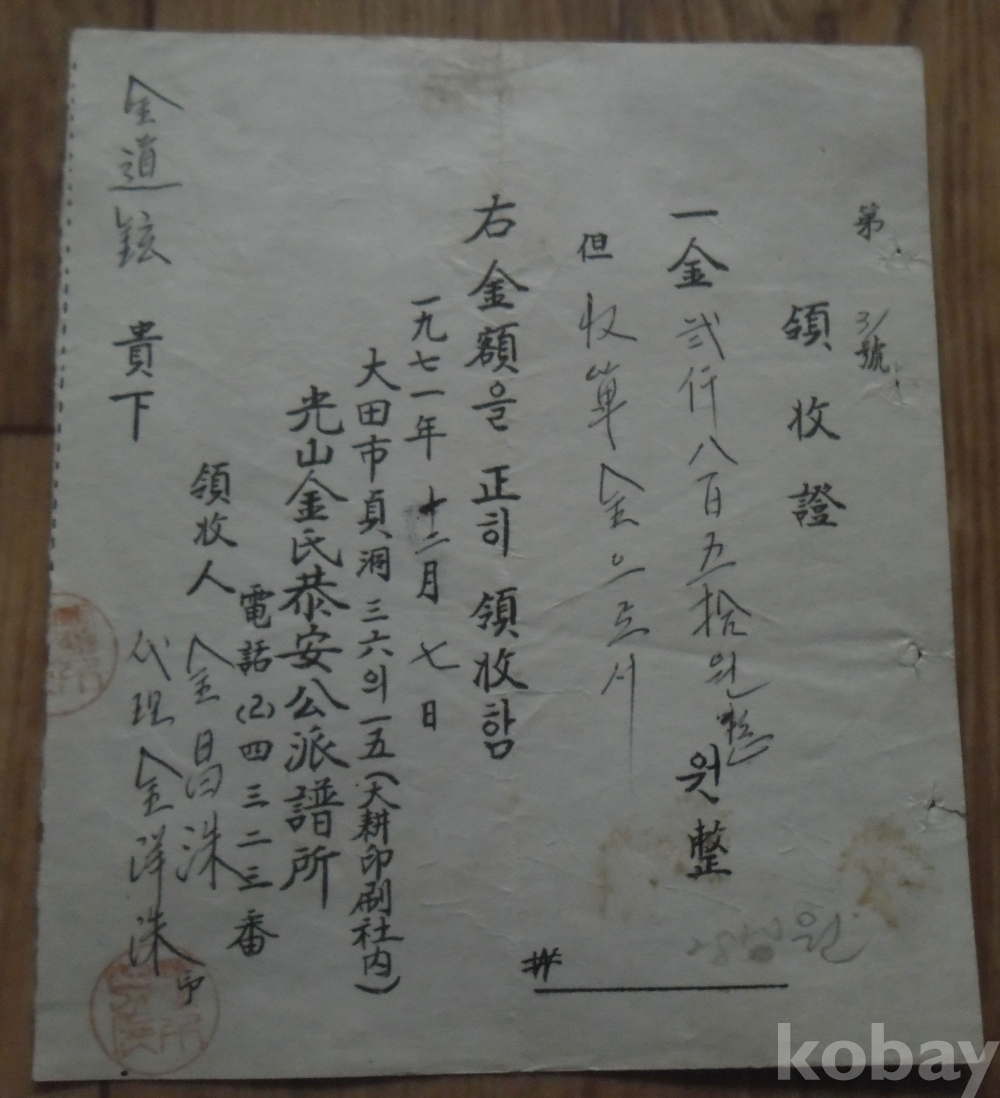 第 31 號
領收證
一金 弐仟八百五拾원整 원整
但 收單金으로서
右金額을 正히 領收함
一九七一年 十二月 七日
大田市 貞洞 三六의 一五 (大耕印刷社内)
光山金氏恭安公派譜所
電話 (2) 四三二三番
領收人 金昌洙
代理 金洋洙 印
金道鉉 貴下
kobay